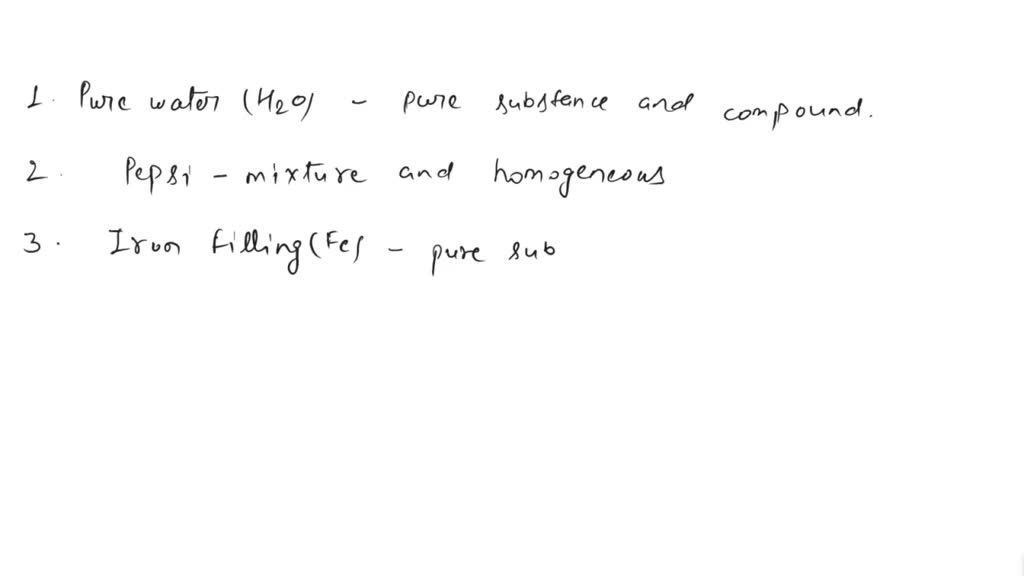 1. Pure water (H2O) - pure substence and compound.
2. Pepsi - mixture and homogeneous
3. Iron filling (Fe) - pure sub